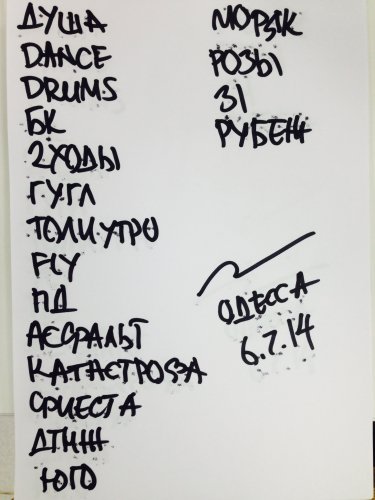 ДУША
DANCE
DRUMS
БК
2ХОДЫ
ГУГЛ
ТОЛИ УТРО
FLY
ПД
АСФАЛЬТ
КАТАСТРОФА
СФИЕСТА
ДТНЖ
ЮГО
МОРЯК
РОЗЫ
31
РУБЕЖ
ОДЕССА
6.7.14